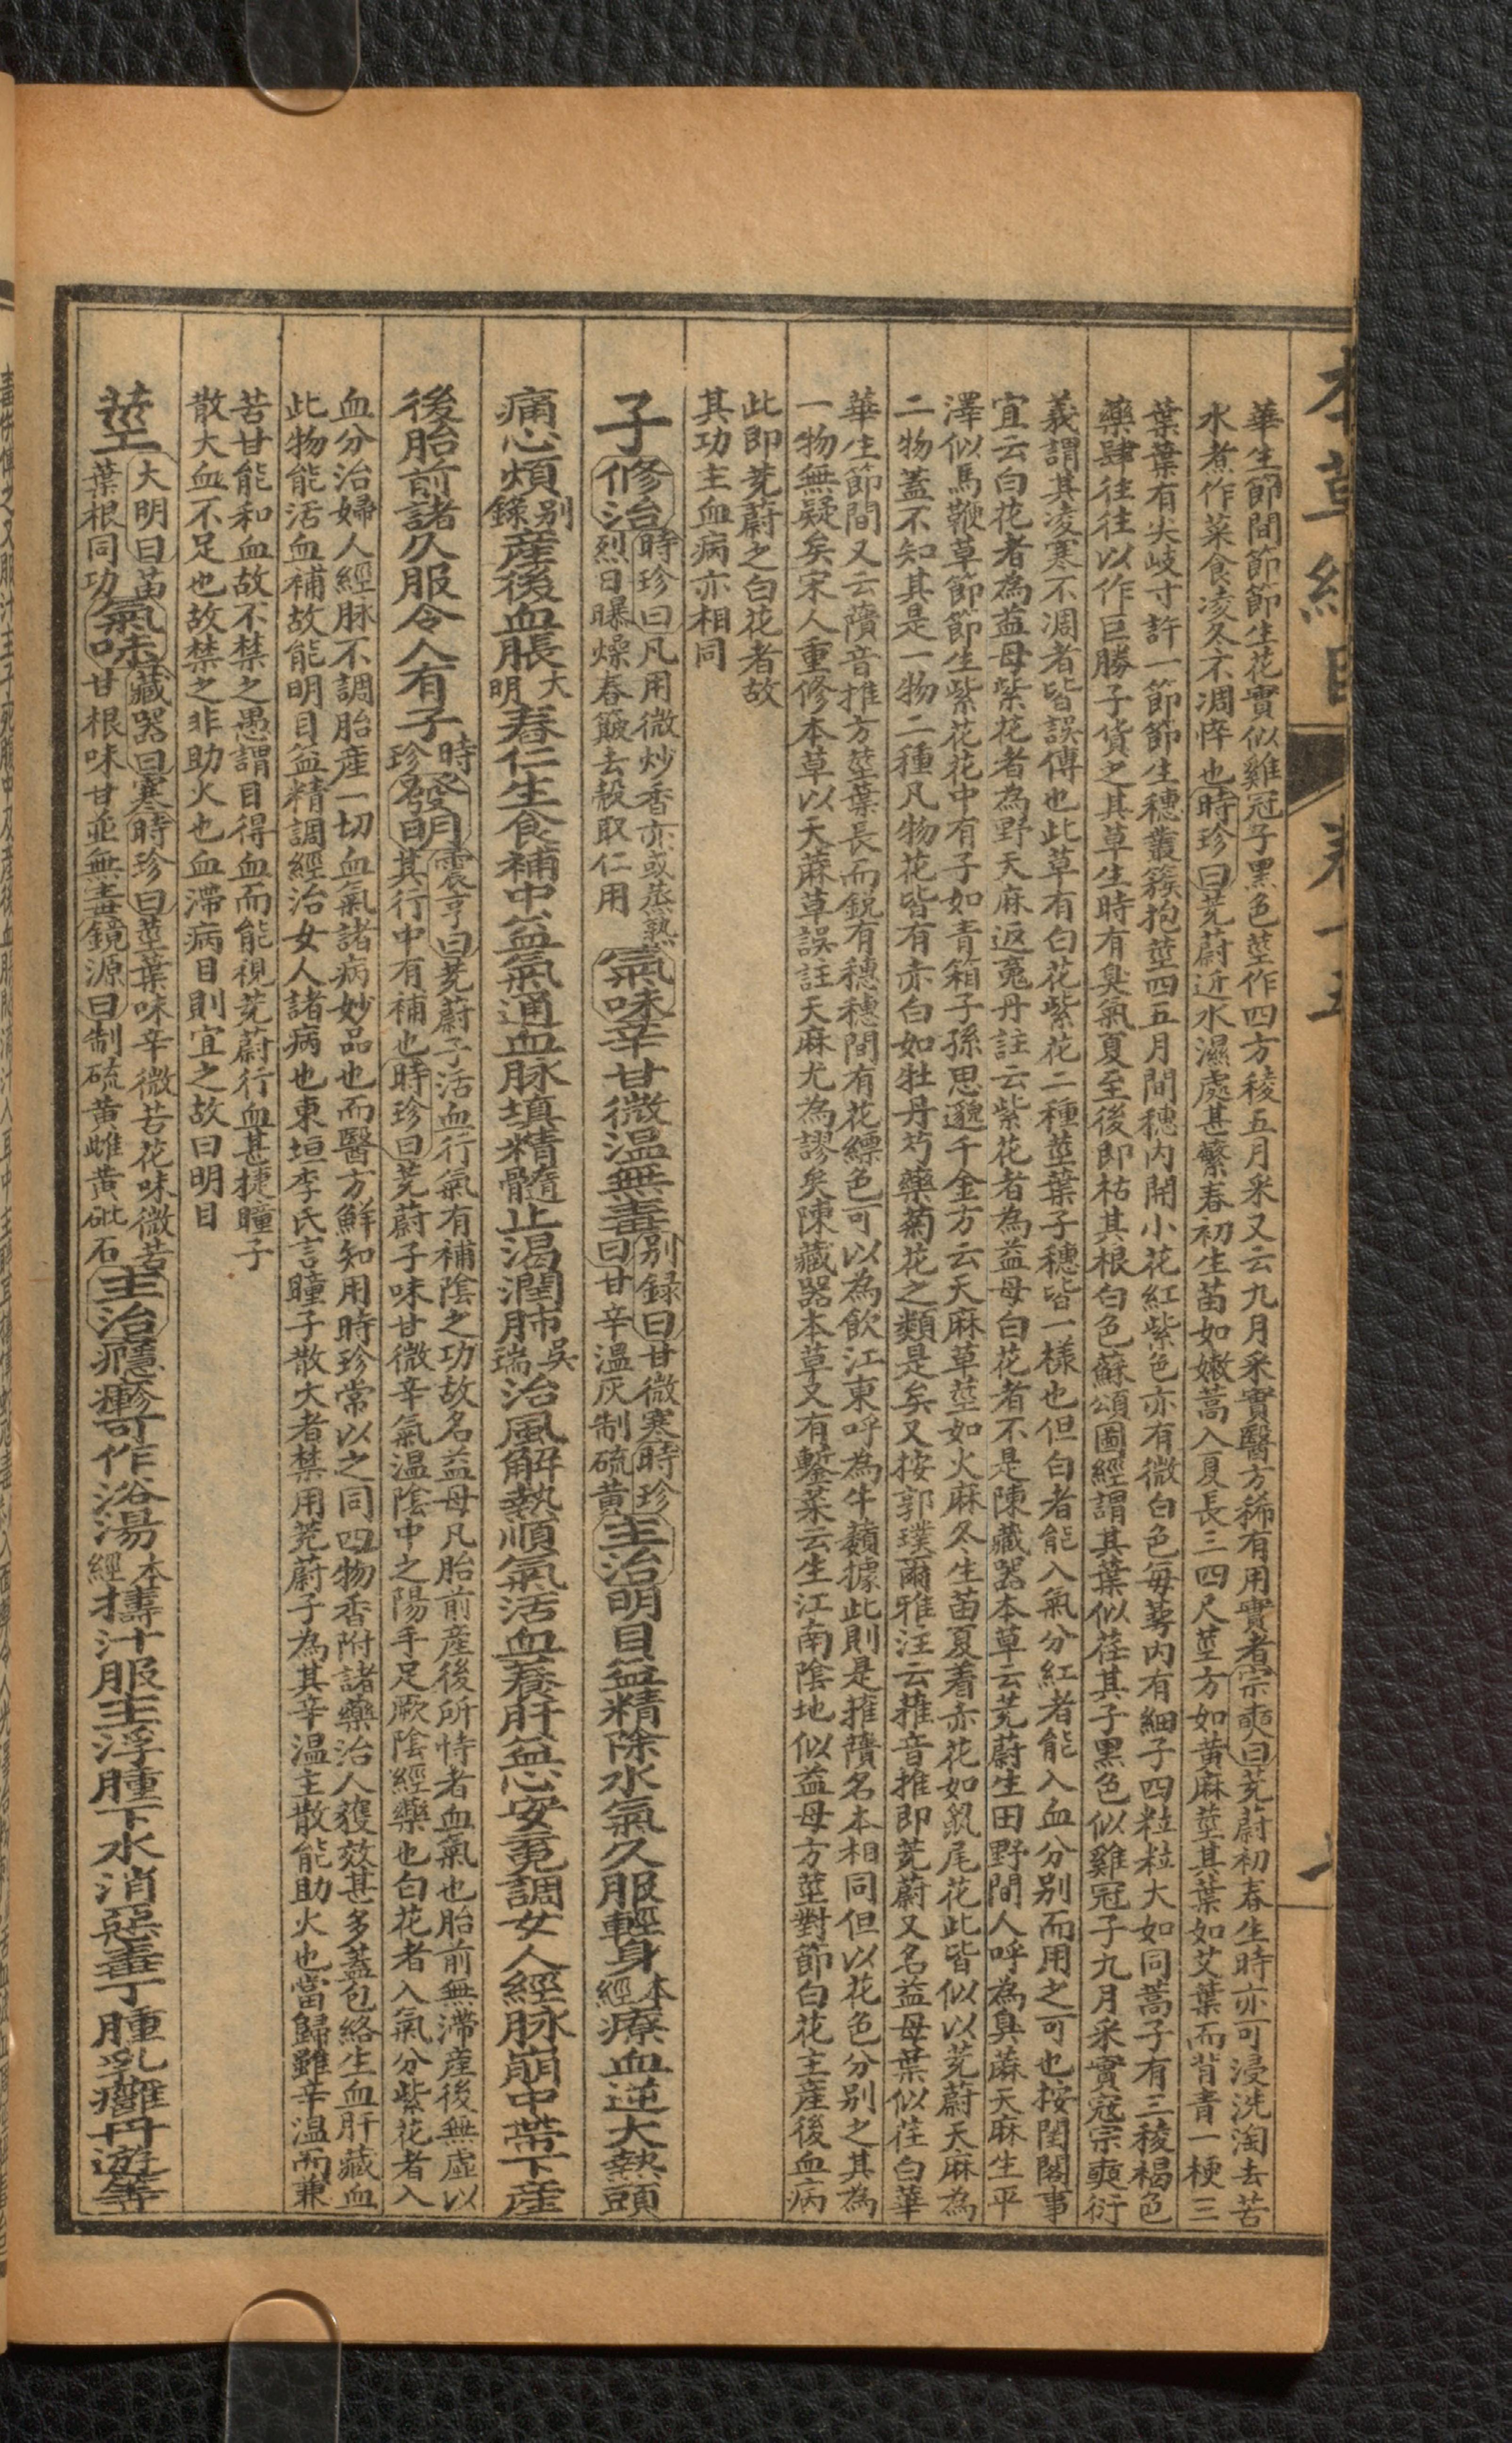 本草綱目 卷十五
華生節間節節生花實似雞冠子黑色莖作四方稜五月采又云九月采實醫方稀有用實者宗奭曰茺蔚初春生時亦可浸洗淘去苦
水煮作菜食凌冬不凋悴也時珍曰茺蔚近水濕處甚繁春初生苗如嫩蒿入夏長三四尺莖方如黃麻莖其葉如艾葉而背青一梗三
葉葉有尖歧寸許一節節生穗叢簇抱莖四五月間穗內開小花紅紫色亦有微白色每萼內有細子四粒粒大如同蒿子有三稜褐色
藥肆往往以作巨勝子貨之其草生時有臭氣夏至後即枯其根白色蘇頌圖經謂其葉似荏其子黑色似雞冠子九月采實寇宗奭衍
義謂其凌寒不凋者皆誤傳也此草有白花紫花二種莖葉子穗皆一樣也但白者能入氣分紅者能入血分別而用之可也按閨閣事
宜云白花者為益母紫花者為野天麻返魂丹註云紫花者為益母白花者不是陳藏器本草云茺蔚生田野間人呼為臭蔴天麻生平
澤似馬鞭草節節生紫花花中有子如青箱子孫思邈千金方云天麻草莖如火麻冬生苗夏着赤花如鼠尾花此皆似以茺蔚天麻為
二物蓋不知其是一物二種凡物花皆有赤白如牡丹芍藥菊花之類是矣又按郭璞爾雅注云蓷音推即茺蔚又名益母葉似荏白華
華生節間又云蘈音推方莖葉長而銳有穗穗間有花縹色可以為飲江東呼為牛蘈據此則是蓷蘈名本相同但以花色分別之其為
一物無疑矣宋人重修本草以天蔴草誤註天麻尤為謬矣陳藏器本草又有鏨菜云生江南陰地似益母方莖對節白花主產後血病
此即茺蔚之白花者故
其功主血病亦相同
子修治時珍曰凡用微炒香亦或蒸熟
烈日曝燥舂簸去殼取仁用氣味辛甘微温無毒別録曰甘微寒時珍
曰甘辛溫灰制硫黃主治明目益精除水氣久服輕身本經療血逆大熱頭
痛心煩別錄產後血脹大明舂仁生食補中益氣通血脉填精髓止渴潤肺吳瑞治風解熱順氣活血養肝益心安䰟調女人經脉崩中帶下產
後胎前諸久服令人有子時珍發明震亨曰茺蔚子活血行氣有補陰之功故名益母凡胎前產後所恃者血氣也胎前無滯產後無虛以
其行中有補也時珍曰茺蔚子味甘微辛氣温陰中之陽手足厥陰經藥也白花者入氣分紫花者入
血分治婦人經脉不調胎產一切血氣諸病妙品也而醫方鮮知用時珍常以之同四物香附諸藥治人獲效甚多蓋包絡生血肝藏血
此物能活血補故能明目益精調經治女人諸病也東垣李氏言瞳子散大者禁用茺蔚子為其辛温主散能助火也當歸雖辛温而兼
苦甘能和血故不禁之愚謂目得血而能視茺蔚行血甚捷瞳子
散大血不足也故禁之非助火也血滯病目則宜之故曰明目
莖大明曰苗
葉根同功氣味藏器曰寒時珍曰莖葉味辛微苦花味微苦
甘根味甘並無毒鏡源曰制硫黃雌黃砒石主治癮𤺋可作浴湯本經擣汁服主浮腫下水消惡毒丁腫乳癰丹遊等